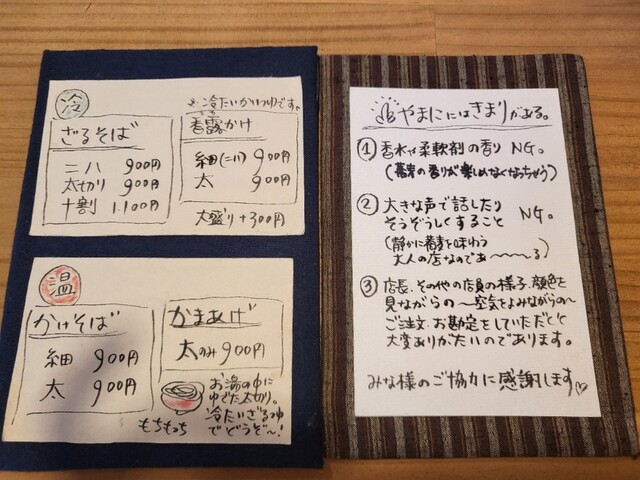 冷
ざるそば
二八 900円
太切り 900円
十割 1.100円
冷たいかけつゆです。
香露かけ
細(二八) 900円
太 900円
大盛り+300円
温
かけそば
細 900円
太 900円
かまあげ
太のみ 900円
お湯の中に
ゆでた太切り。
冷たいざるつゆ
でどうぞ〜!
もちもっち
やまににはきまりがある。
① 香水や柔軟剤の香り NG。
(蕎麦の香りが楽しめなくなっちゃう)
② 大きな声で話したり
そうぞうしくすること NG。
(静かに蕎麦を味わう
大人の店なのであ〜〜〜る)
③ 店長、その他の店員の様子、顔色を
見ながらの〜空気をよみながらの〜
ご注文、お勘定をしていただくと
大変ありがたいのであります。
みな様のご協力に感謝します♡